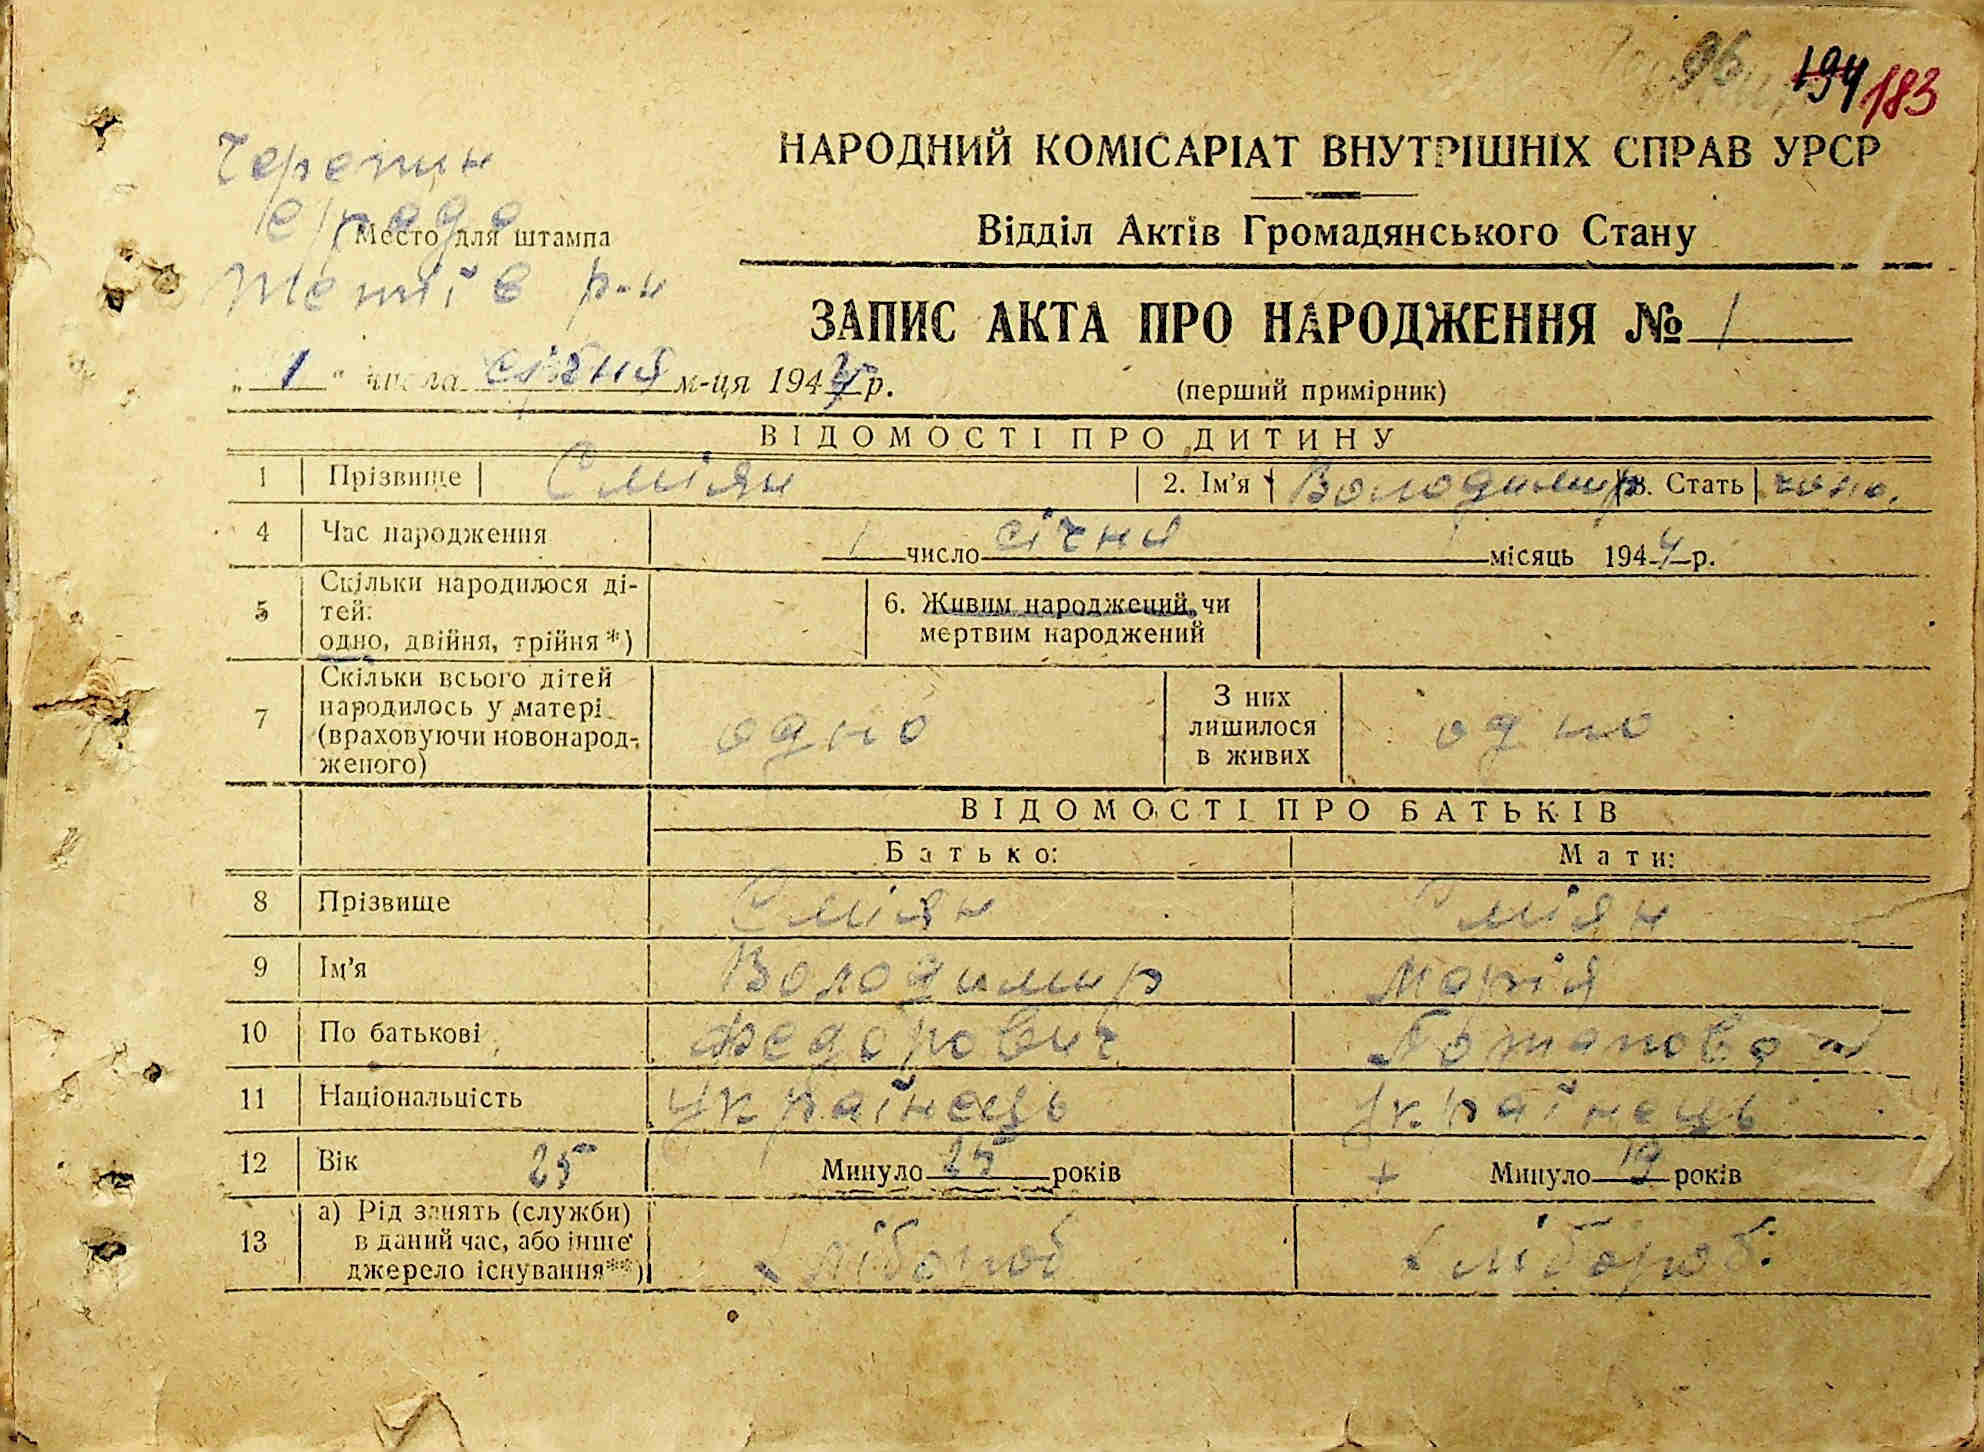 96 194 183
Черепин
с/рада
Место для штампа
Тетіїв р-н
НАРОДНИЙ КОМІСАРІАТ ВНУТРІШНІХ СПРАВ УРСР
Відділ Актів Громадянського Стану
ЗАПИС АКТА ПРО НАРОДЖЕННЯ № 1
„ 1 " числа січня м-ця 1944 р.
(перший примірник)
ВІДОМОСТІ ПРО ДИТИНУ
1 Прізвище Сміян 2. Ім'я Володимир 3. Стать чоло.
4 Час народження 1 число січня місяць 1944 р.
5 Скільки народилося ді-
тей:
одно, двійня, трійня*)
6. Живим народжений, чи
мертвим народжений
7 Скільки всього дітей
народилось у матері
(враховуючи новонарод-
женого)
одно
З них
лишилося
в живих
одно
ВІДОМОСТІ ПРО БАТЬКІВ
Батько: Мати:
8 Прізвище Сміян Сміян
9 Ім'я Володимир Марія
10 По батькові Федорович Потапова
11 Національність Українець Українець
12 Вік 25 Минуло 25 років + Минуло 19 років
13 а) Рід занять (служби)
в даний час, або інше
джерело існування**)
хлібороб хлібороб.